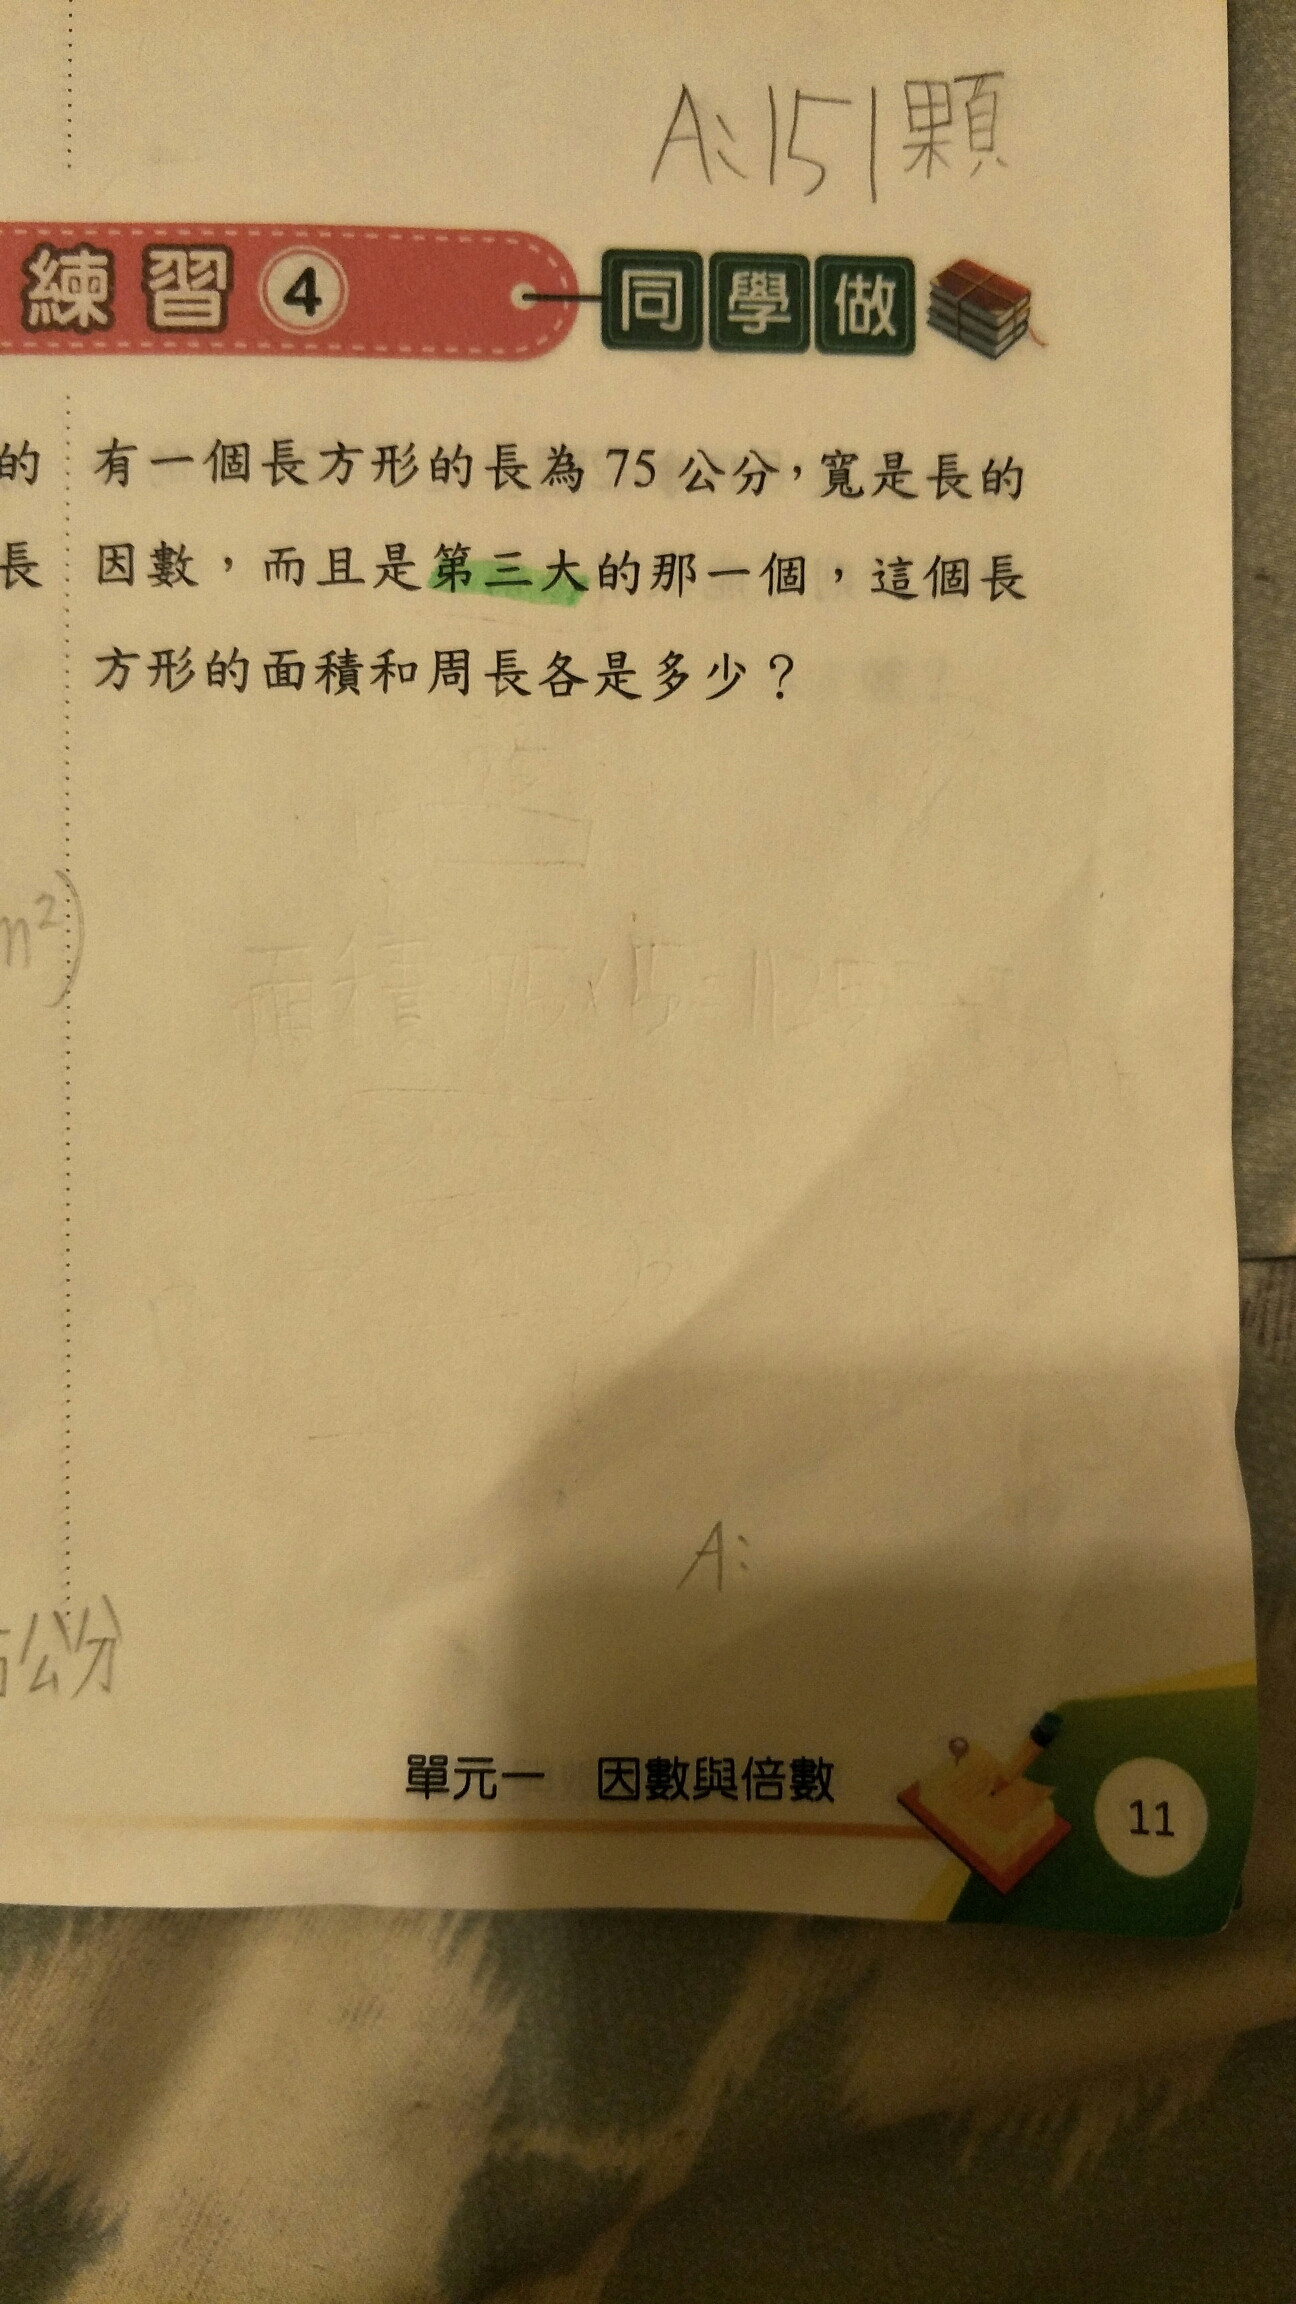 A:151顆
練習4 同學做
的
有一個長方形的長為 75 公分，寬是長的
長
因數，而且是第三大的那一個，這個長
方形的面積和周長各是多少？
面積 75×15=1125
m²)
A:
公分
單元一 因數與倍數
11